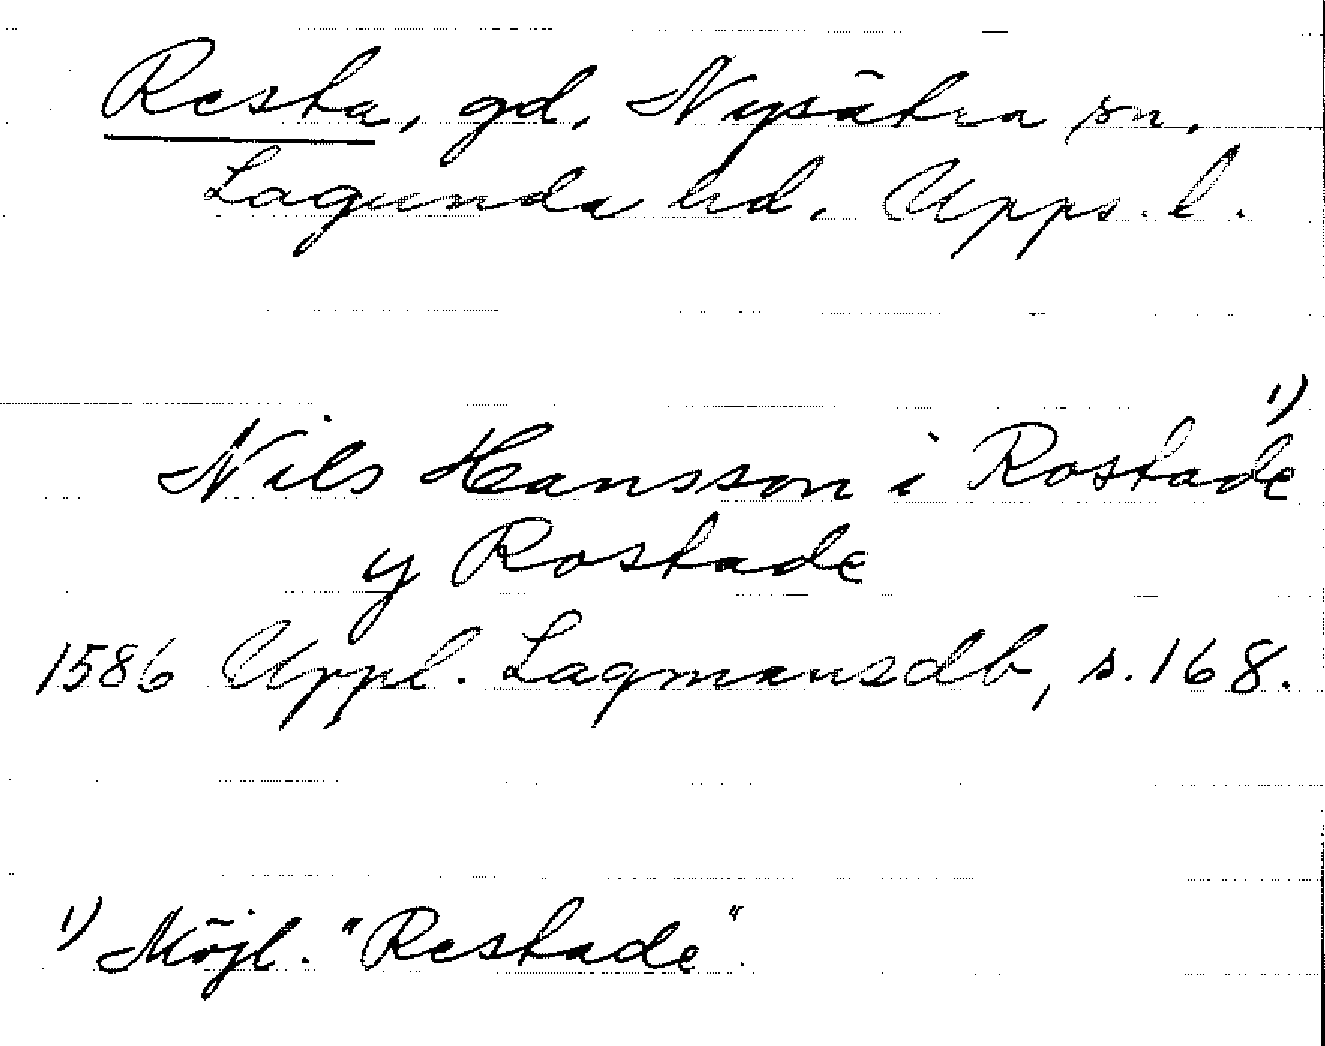 Resta, gd, Nysätra sn,
Lagunda hd. Upps. l.
Nils Hansson i Rostade 1)
y Rostade
1586 Uppl. Lagmansdb, s. 168.
1) Möjl. "Restade".